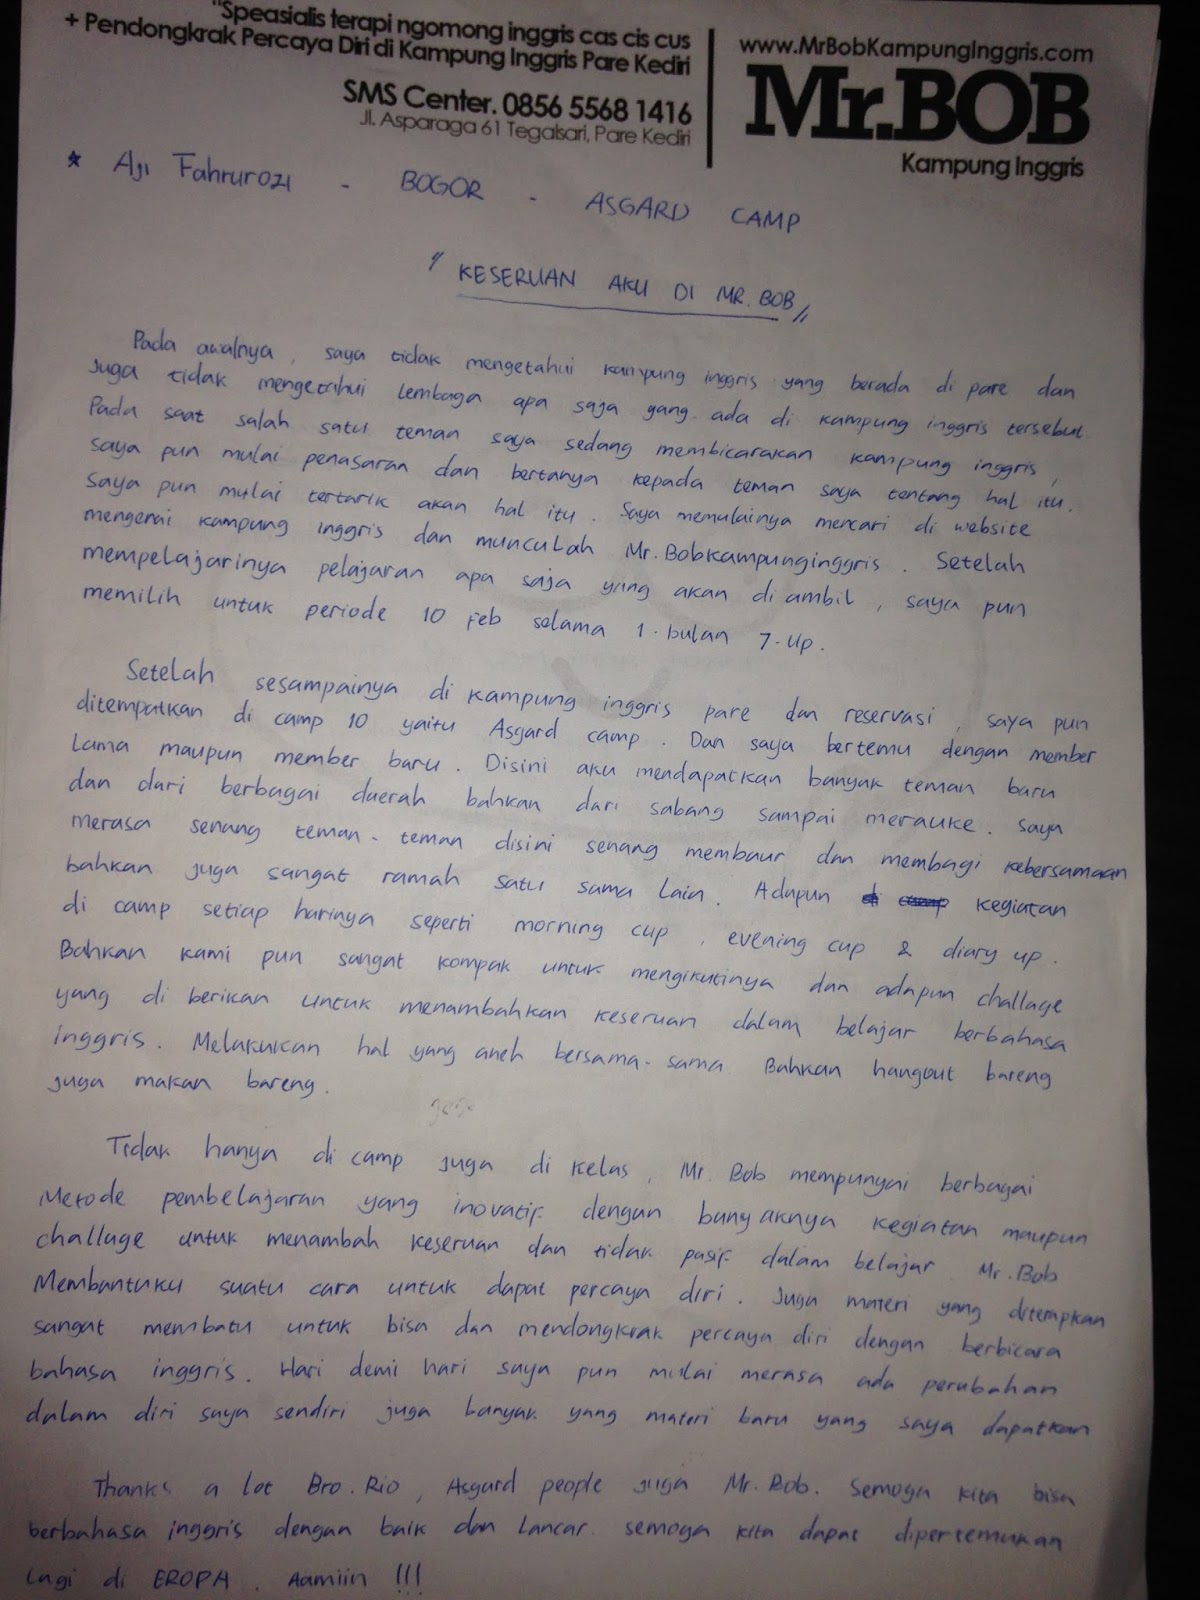 "Speasialis terapi ngomong inggris cas cis cus
+ Pendongkrak Percaya Diri di Kampung Inggris Pare Kediri
SMS Center. 0856 5568 1416
Jl. Asparaga 61 Tegalsari, Pare Kediri
www.MrBobKampungInggris.com
Mr.BOB
Kampung Inggris
* Aji Fahrurozi - BOGOR - ASGARD CAMP
" KESERUAN AKU DI MR. BOB "
Pada awalnya, saya tidak mengetahui kampung inggris yang berada di pare dan
juga tidak mengetahui lembaga apa saja yang ada di kampung inggris tersebut.
Pada saat salah satu teman saya sedang membicarakan kampung inggris,
saya pun mulai penasaran dan bertanya kepada teman saya tentang hal itu.
saya pun mulai tertarik akan hal itu. Saya memulainya mencari di website
mengenai kampung inggris dan munculah Mr.Bobkampunginggris. Setelah
mempelajarinya pelajaran apa saja yang akan di ambil, saya pun
memilih untuk periode 10 Feb selama 1 bulan 7-up.
Setelah sesampainya di kampung inggris pare dan reservasi, saya pun
ditempatkan di camp 10 yaitu Asgard camp. Dan saya bertemu dengan member
lama maupun member baru. Disini aku mendapatkan banyak teman baru
dan dari berbagai daerah bahkan dari sabang sampai merauke. Saya
merasa senang teman-teman disini senang membaur dan membagi kebersamaan
bahkan juga sangat ramah satu sama lain. Adapun kegiatan
di camp setiap harinya seperti morning cup, evening cup & diary up.
Bahkan kami pun sangat kompak untuk mengikutinya dan adapun challage
yang di berikan untuk menambahkan keseruan dalam belajar berbahasa
inggris. Melakukan hal yang aneh bersama-sama. Bahkan hangout bareng
juga makan bareng.
Tidak hanya di camp juga di kelas, Mr. Bob mempunyai berbagai
Metode pembelajaran yang inovatif dengan banyaknya kegiatan maupun
challage untuk menambah keseruan dan tidak pasif dalam belajar. Mr. Bob
Membantuku suatu cara untuk dapat percaya diri. Juga materi yang diterapkan
sangat membatu untuk bisa dan mendongkrak percaya diri dengan berbicara
bahasa inggris. Hari demi hari saya pun mulai merasa ada perubahan
dalam diri saya sendiri juga banyak yang materi baru yang saya dapatkan
Thanks a lot Bro. Rio, Asgard people juga Mr. Bob. Semoga kita bisa
berbahasa inggris dengan baik dan lancar. semoga kita dapat dipertemukan
lagi di EROPA. Aamiin !!!